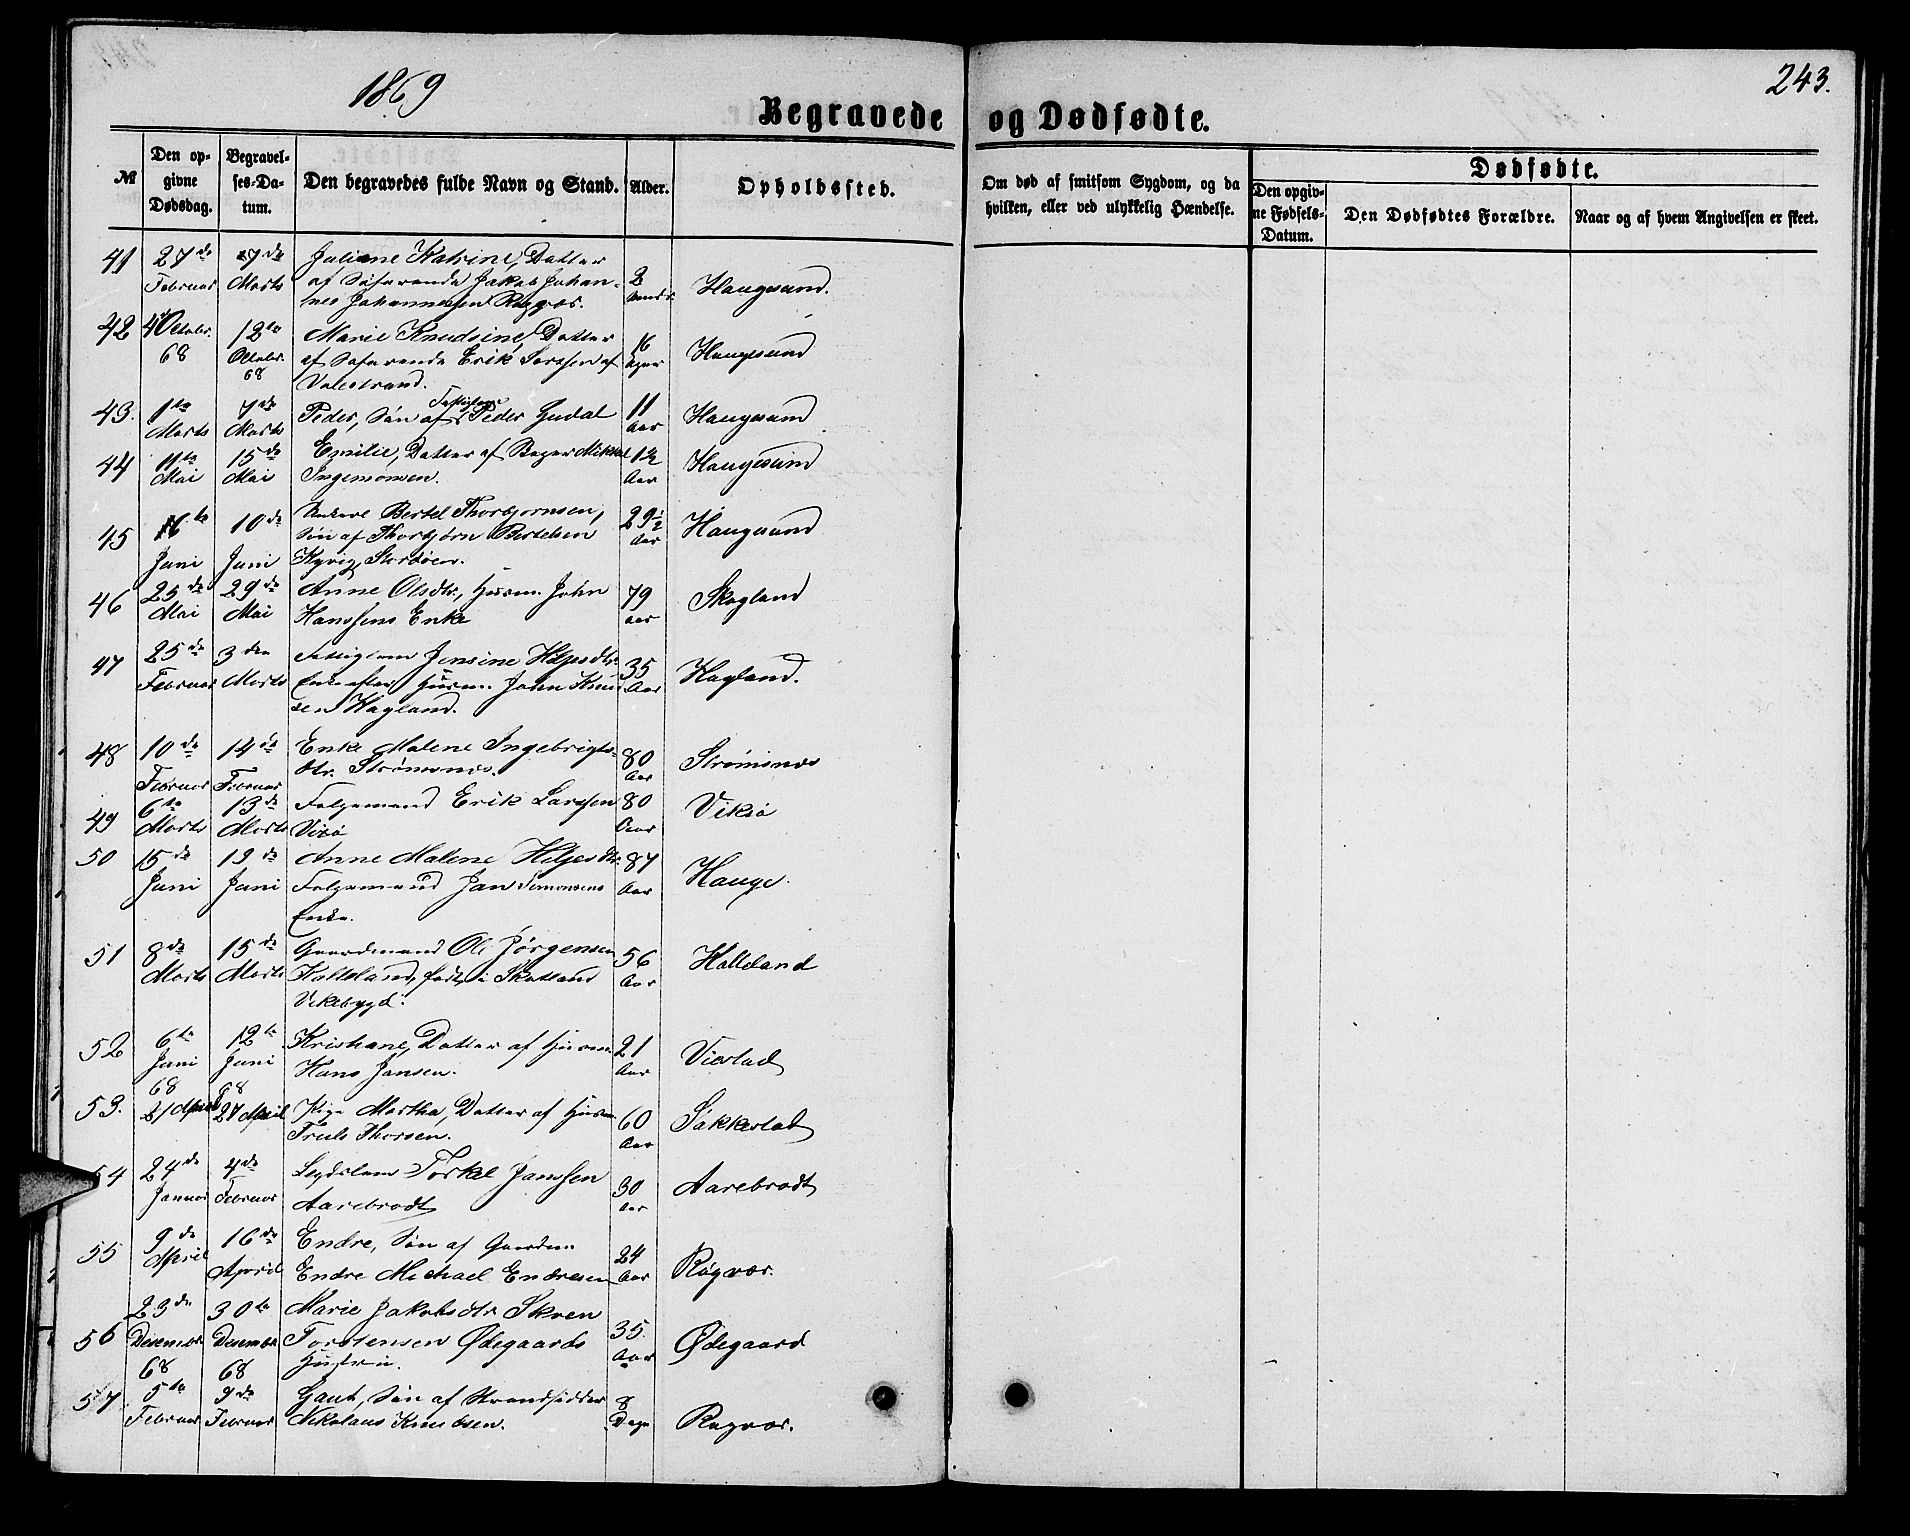 1869
243.
Begravede og Dødfødte.
№
Den op-
givne
Dødsdag.
Begravel-
ses-Da-
tum.
Den begravedes fulde Navn og Stand.
Alder.
Opholdssted.
Om død af smitsom Sygdom, og da
hvilken, eller ved ulykkelig Hændelse.
Dødfødte.
Den opgiv-
ne Fødsels-
Datum.
Den Dødfødtes Forældre.
Naar og af hvem Angivelsen er skeet.
41 27de 7de Juliane Katrine, Datter
Februar Marts af Søfarende Jakob Johan- 2 Haugesund.
nes Johannessen
42 4 Octobr. 12te Marie Knudsine, Datter 16
68 Octobr. af Søfarende Erik Larssen af Dager Haugesund
68 Valestrand.
43. 1te 7de Peder, Søn af Peder Gudal 11 Haugesund
Marts Marts Aar
44 11te 15de Emilie, Datter af Bager Mikkel 1½ Haugesund
Mai Mai Ingemonsen. Aar
45 6te 10de Bertel Thorbjørnsen, 29½ Haugesund
Søn af Thorbjørn Bertelsen Aar
Juni Juni
46 25de 29de Anne Olsdtr., Husm. John 79 Skogland
Mai Mai Hanssens Enke Aar
47 25de 3die Fattiglem Jensine Hiljesdtr. 35 Hagland.
Februar Marts Enke efter Husm. John Knud- Aar
sen Hagland.
48 10de 14de Enke Malene Ingebrigts- 80 Strømsnes
Februar Februar dtr. Strømsnes. Aar
49 6te 13de Folgemand Erik Larssen 80 Viksø
Marts Marts Aar
50 15de 19de Anne Malene Hiljesdtr. 87 Hauge.
Juni Juni Folgemand Jan Simonsens Aar
Enke.
51 8de 15de Gaardmand Ole Jørgensen 56 Halleland
Marts Marts født i Skotland Aar
Vikebygd.
52 6te 12te Kristiane, Datter af Husm. 21
Juni Juni Hans Jansen. Aar
68 68
53. 21 April 27 April Pige Martha, Datter af Husm. 60 Søkkestad
Truls Thorsen. Aar
54 24de 4de Torkel Janssen 30 Aarebrodt
Januar Februar Aarebrodt Aar
55 9de 16de Endre, Søn af Gaardm. 24 Røgvær.
April April Endre Michael Endresen Aar
56 23de 30te Marie Jakobsdtr. 35 Ødegaard
Desember Desember Torstensen Ødegaards Aar
68 68 Hustru.
57 5te 9de Gaut, Søn af Strandsidder 8
Februar Februar Nikolaus Knudsen. Dage Røgvær.